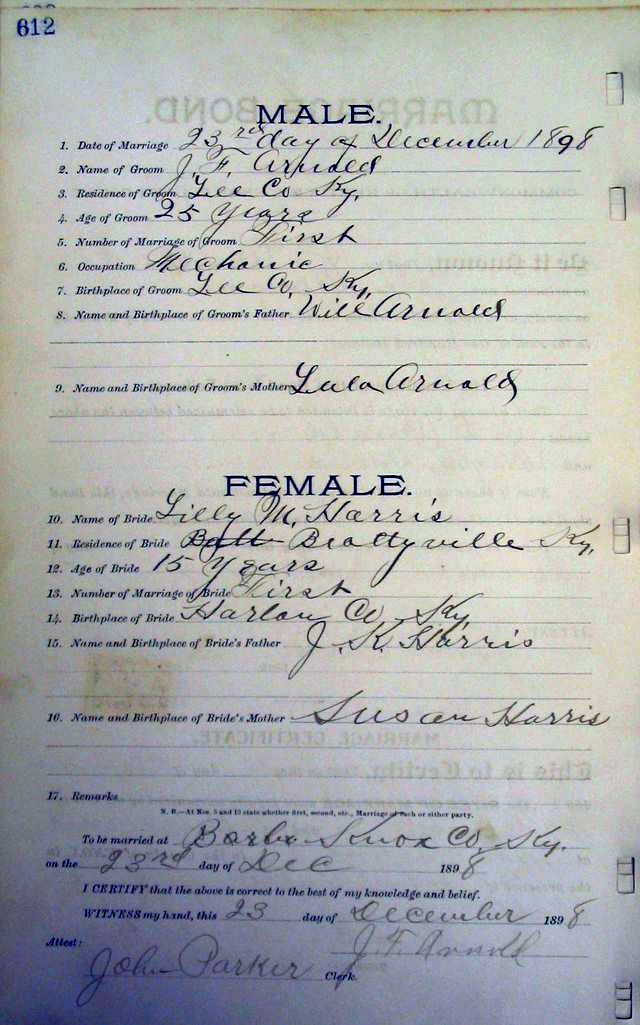 612
MALE.
1. Date of Marriage 23rd day of December 1898
2. Name of Groom J. F. Arnold
3. Residence of Groom Lee Co Ky.
4. Age of Groom 25 Years
5. Number of Marriage of Groom First
6. Occupation Mechanic
7. Birthplace of Groom Lee Co, Ky,
8. Name and Birthplace of Groom's Father Will Arnold
9. Name and Birthplace of Groom's Mother Lula Arnold
FEMALE.
10. Name of Bride Lilly M. Harris
11. Residence of Bride Beattyville Ky.
12. Age of Bride 15 Years
13. Number of Marriage of Bride First
14. Birthplace of Bride Harlan Co Ky,
15. Name and Birthplace of Bride's Father J. K. Harris
16. Name and Birthplace of Bride's Mother Susan Harris
17. Remarks
N. B.—At Nos. 5 and 13 state whether first, second, etc., Marriage of each or either party.
To be married at Knox Co, Ky.
on the 23rd day of Dec 1898
I CERTIFY that the above is correct to the best of my knowledge and belief.
WITNESS my hand, this 23 day of December 1898
J F Arnold
Attest:
John Parker Clerk.